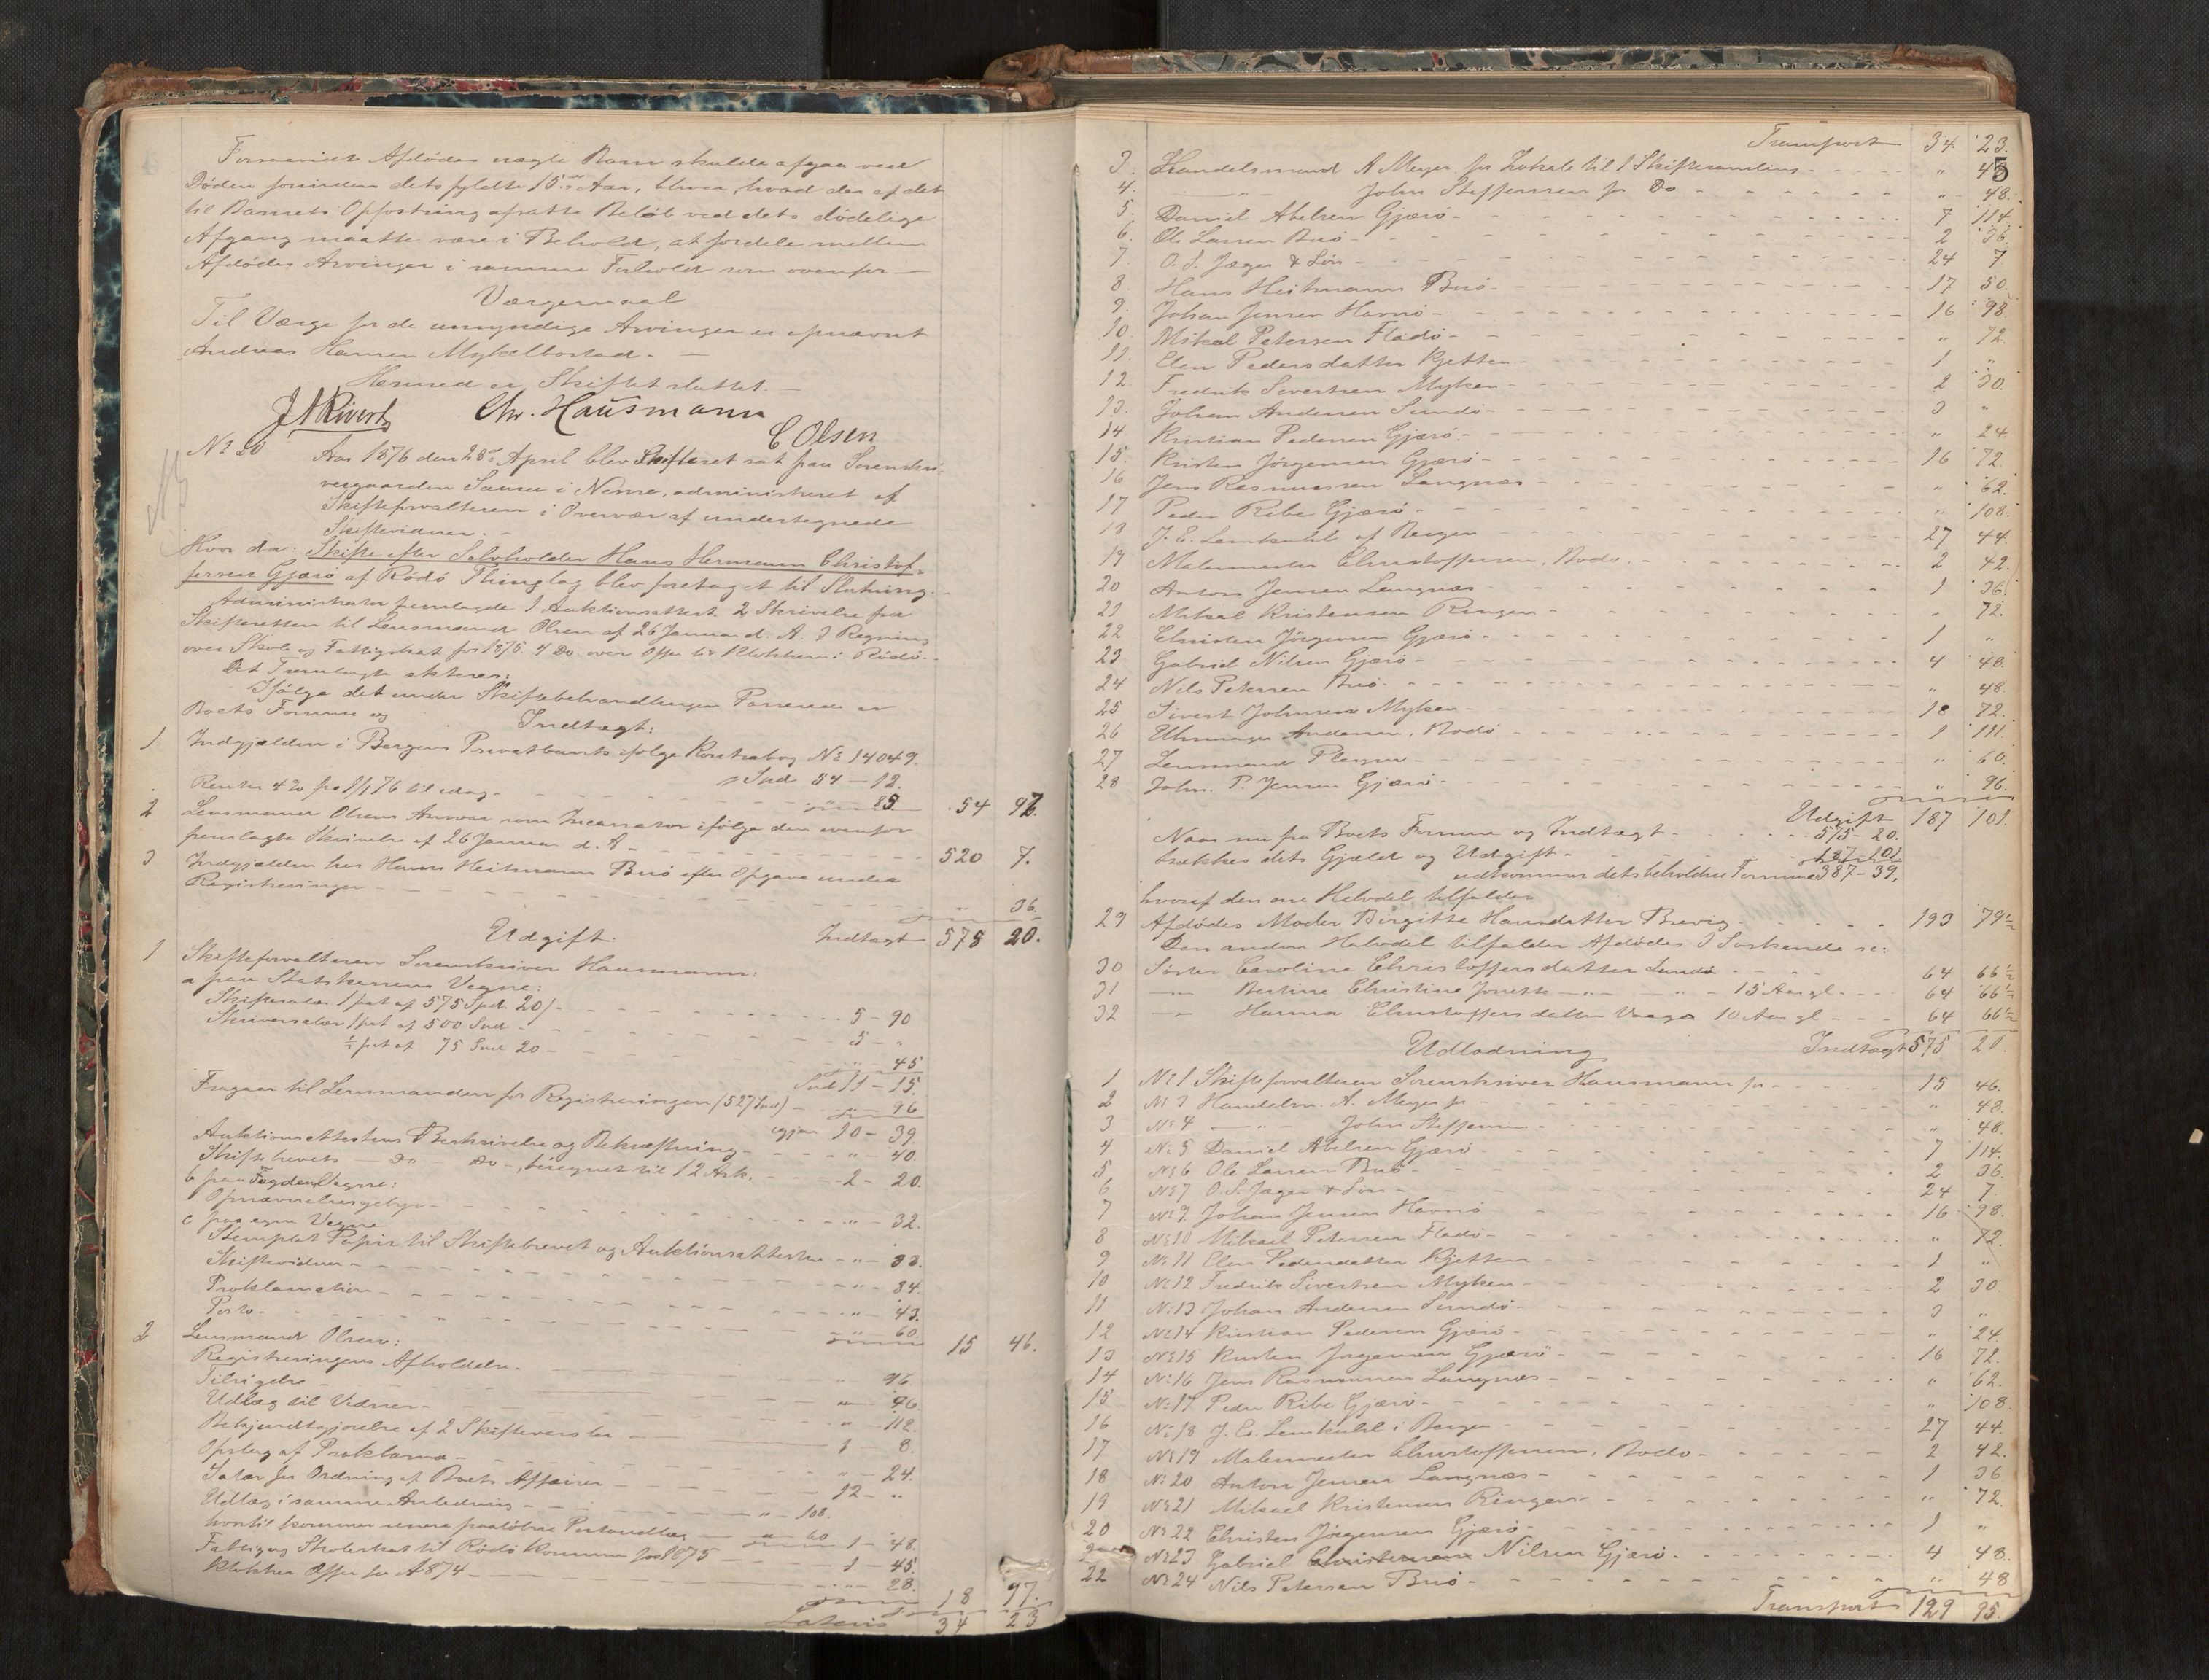 Forsaavidt Afdødes uægte Barn skulde afgaa ved
Døden forinden dets fyldte 15de Aar, bliver, hvad der af det
til Barnets Opfostring afsatte Beløb ved dets dødelige
Afgang maatte være i Behold, at fordele mellem
Afdødes Arvinger i samme Forhold som ovenfor —
Værgemaal
Til Værge for de umyndige Arvinger er opnævnt
Andreas Hansen Mykelbostad. —
Hermed er Skiftet sluttet. —
Chr. Hausmann
C Olsen
No 20
Aar 1876 den 28de April blev Skifteret sat paa Sorenskri-
vergaarden i Nesne, administreret af
Skifteforvalteren i Overvær af undertegnede
Skiftevidner. —
Hvor da: Skifte efter Selveholder Hans Hermann Christof-
fersen Gjærø af Rødø Thinglag blev foretaget til Slutning. —
Administrator fremlagde 1 Auktionsattest. 2 Skrivelse fra
Skifteretten til Lensmand Olsen af 26 Januar d. A. 3 Regning
over Skole og Fattigskat for 1875. 4 Do over Offer til Klokkeren i Rødø. —
Det Fremlagte akteres:
Ifølge det under Skiftebehandlingen Passerede er
Boets Formue og
Indtægt:
1 Indgjælden i Bergens Privatbank ifølge Kontrabog No 14049.
Spd 54 — 12.
Renter 4% fra 1/1 76 til idag - 85. 54 97.
2 Lensmand Olsens Ansvar som Incassator ifølge den ovenfor
fremlagte Skrivelse af 26 Januar d. A - 520 7.
3 Indgjælden hos Hans Heitmann Buø efter Opgave under
Registreringen - " 36.
Udgift: Indtægt 575 20.
1 Skifteforvalteren Sorenskriver Hausmann:
a paa Statskassens Vegne:
Skiftesalær 1 pct af 575 Spd. 20 - 5 - 90
Skriversalær 1 pct af 500 Spd - 5 - "
½ pct af 75 Spd 20 - " - 45
Spd 11 - 15.
Fragaar til Lensmanden for Registreringen (527 Spd) - " 96
igjen 10 - 39.
Auktionsattestens Beskrivelse og Bekræftning - " - 40
Skiftebrevets — Do — Do —, beregnet til 12 Ark. - 2 - 20.
b paa Fogdens Vegne:
Opnævnelsesgebyr - " - 32.
c paa egne Vegne
Stemplet Papir til Skiftebrevet og Auktionsattesten - " - 33.
Skiftevidner - " - 84.
Proklamation - " - 43.
Porto - 60. 15 46.
2 Lensmand Olsen:
Registreringens Afholdelse - " 96
Tilsigelse - " 96
Udlæg til Vidner - " 112.
Bekjendtgjørelse af 2 Skiftevarsler - 1 8.
Opslag af Proklama - " - 24.
Salær for Ordning af Boets Affairer - 12 - "
Udlæg i samme Anledning - " - 108.
hvortil kommer senere paaløbne Portoudlæg - " 60 1 - 48.
Fattig og Skoleskat til Rødø Kommune for 1875 - 1 - 45.
Klokker Offer for 1874 - " 28. 18 97.
Lateris 34 23
Transport 34 23.
3. Handelsmand A Meyer for Lokale til 1 Skiftesamling - " 48.
4. — " — John Steffensen for Do - " 48.
5. Daniel Abelsen Gjærø - 7 114.
6. Ole Larsen Buø - 2 36.
7. O. S. Jæger & Søn - 24 7
8. Hans Heitmann Buø - 17 50.
9. Johan Jensen Havnø - 16 98.
10. Mikal Petersen Fladø - " 72.
11. Elen Pedersdatter Kjetten - 1 "
12. Fredrik Sivertsen Myken - 2 30.
13. Johan Andersen Sundø - 3 "
14 Kristian Pedersen Gjærø. - " 24.
15. Kristen Jørgensen Gjærø - 16 72.
16 Jens Rasmussen Langnæs - " 62.
17 Peder Ribe Gjærø - " 108.
18 J. E. Lemkuhl af Bergen - 27 44.
19 Malermester Christoffersen, Bodø. - 2 42.
20 Anton Jensen Langnæs - 1 36.
21 Mikal Kristensen Ringen - " 72.
22 Christen Jørgensen Gjærø - 1 "
23 Gabriel Nilsen Gjærø - 4 48.
24 Nils Petersen Buø - " 48.
25 Sivert Johnsen Myken - 18 72.
26 Uhrmager Andersen, Bodø - 1 111.
27 Lensmand - " 60.
28 John. P. Jensen Gjærø - " 96.
Udgift 187 101.
Naar nu fra Boets Formue og Indtægt - 575 - 20.
trækkes dets Gjæld og Udgift - 187 - 101
udkommer dets beholdne Formue 387 - 39,
hvoraf den ene Halvdel tilfalder
29 Afdødes Moder Birgitte Hansdatter Brevig - 193 79½
Den anden Halvdel tilfalder Afdødes 3 Søskende se:
30 Søster Caroline Christoffersdatter Sundø - 64 66½
31 — " — Bertine Christine Jonette — " — " - 15 Aar gl. - 64 66½
32 — " — Hanna Christoffersdatter Vaaga 10 Aar gl - 64 66½
Udlodning Indtægt 575 20.
1 No 1 Skifteforvalteren Sorenskriver Hausmann for - 15 46.
2 No 3 Handelsm. A. Meyer for - " 48.
3 No 4 — " — John Steffensen - " 48.
4 No 5 Daniel Abelsen Gjærø - 7 114.
5 No 6 Ole Larsen Buø - 2 36.
6 No 7 O. S. Jæger & Søn - 24 7
7 No 9 Johan Jensen Havnø - 16 98.
8 No 10 Mikael Petersen Fladø - " 72.
9 No 11 Elen Pedersdatter Kjetten - 1 "
10 No 12 Fredrik Sivertsen Myken - 2 30.
11 No 13 Johan Andersen Sundø - 3 "
12 No 14 Kristian Pedersen Gjærø - " 24.
13 No 15 Kristen Jørgensen Gjærø - 16 72.
14 No 16 Jens Rasmussen Langnæs - " 62.
15 No 17 Peder Ribe Gjærø - " 108.
16 No 18 J. E. Lemkuhl i Bergen - 27 44.
17 No 19 Malermester Christoffersen, Bodø - 2 42.
18 No 20 Anton Jensen Langnæs - 1 36
19 No 21 Mikael Kristensen Ringen - " 72.
20 No 22 Christen Jørgensen Gjærø - 1 "
No 23 Gabriel Christensen Nilsen Gjærø - 4 48.
22 No 24 Nils Petersen Buø - " 48
Transport 129 95.